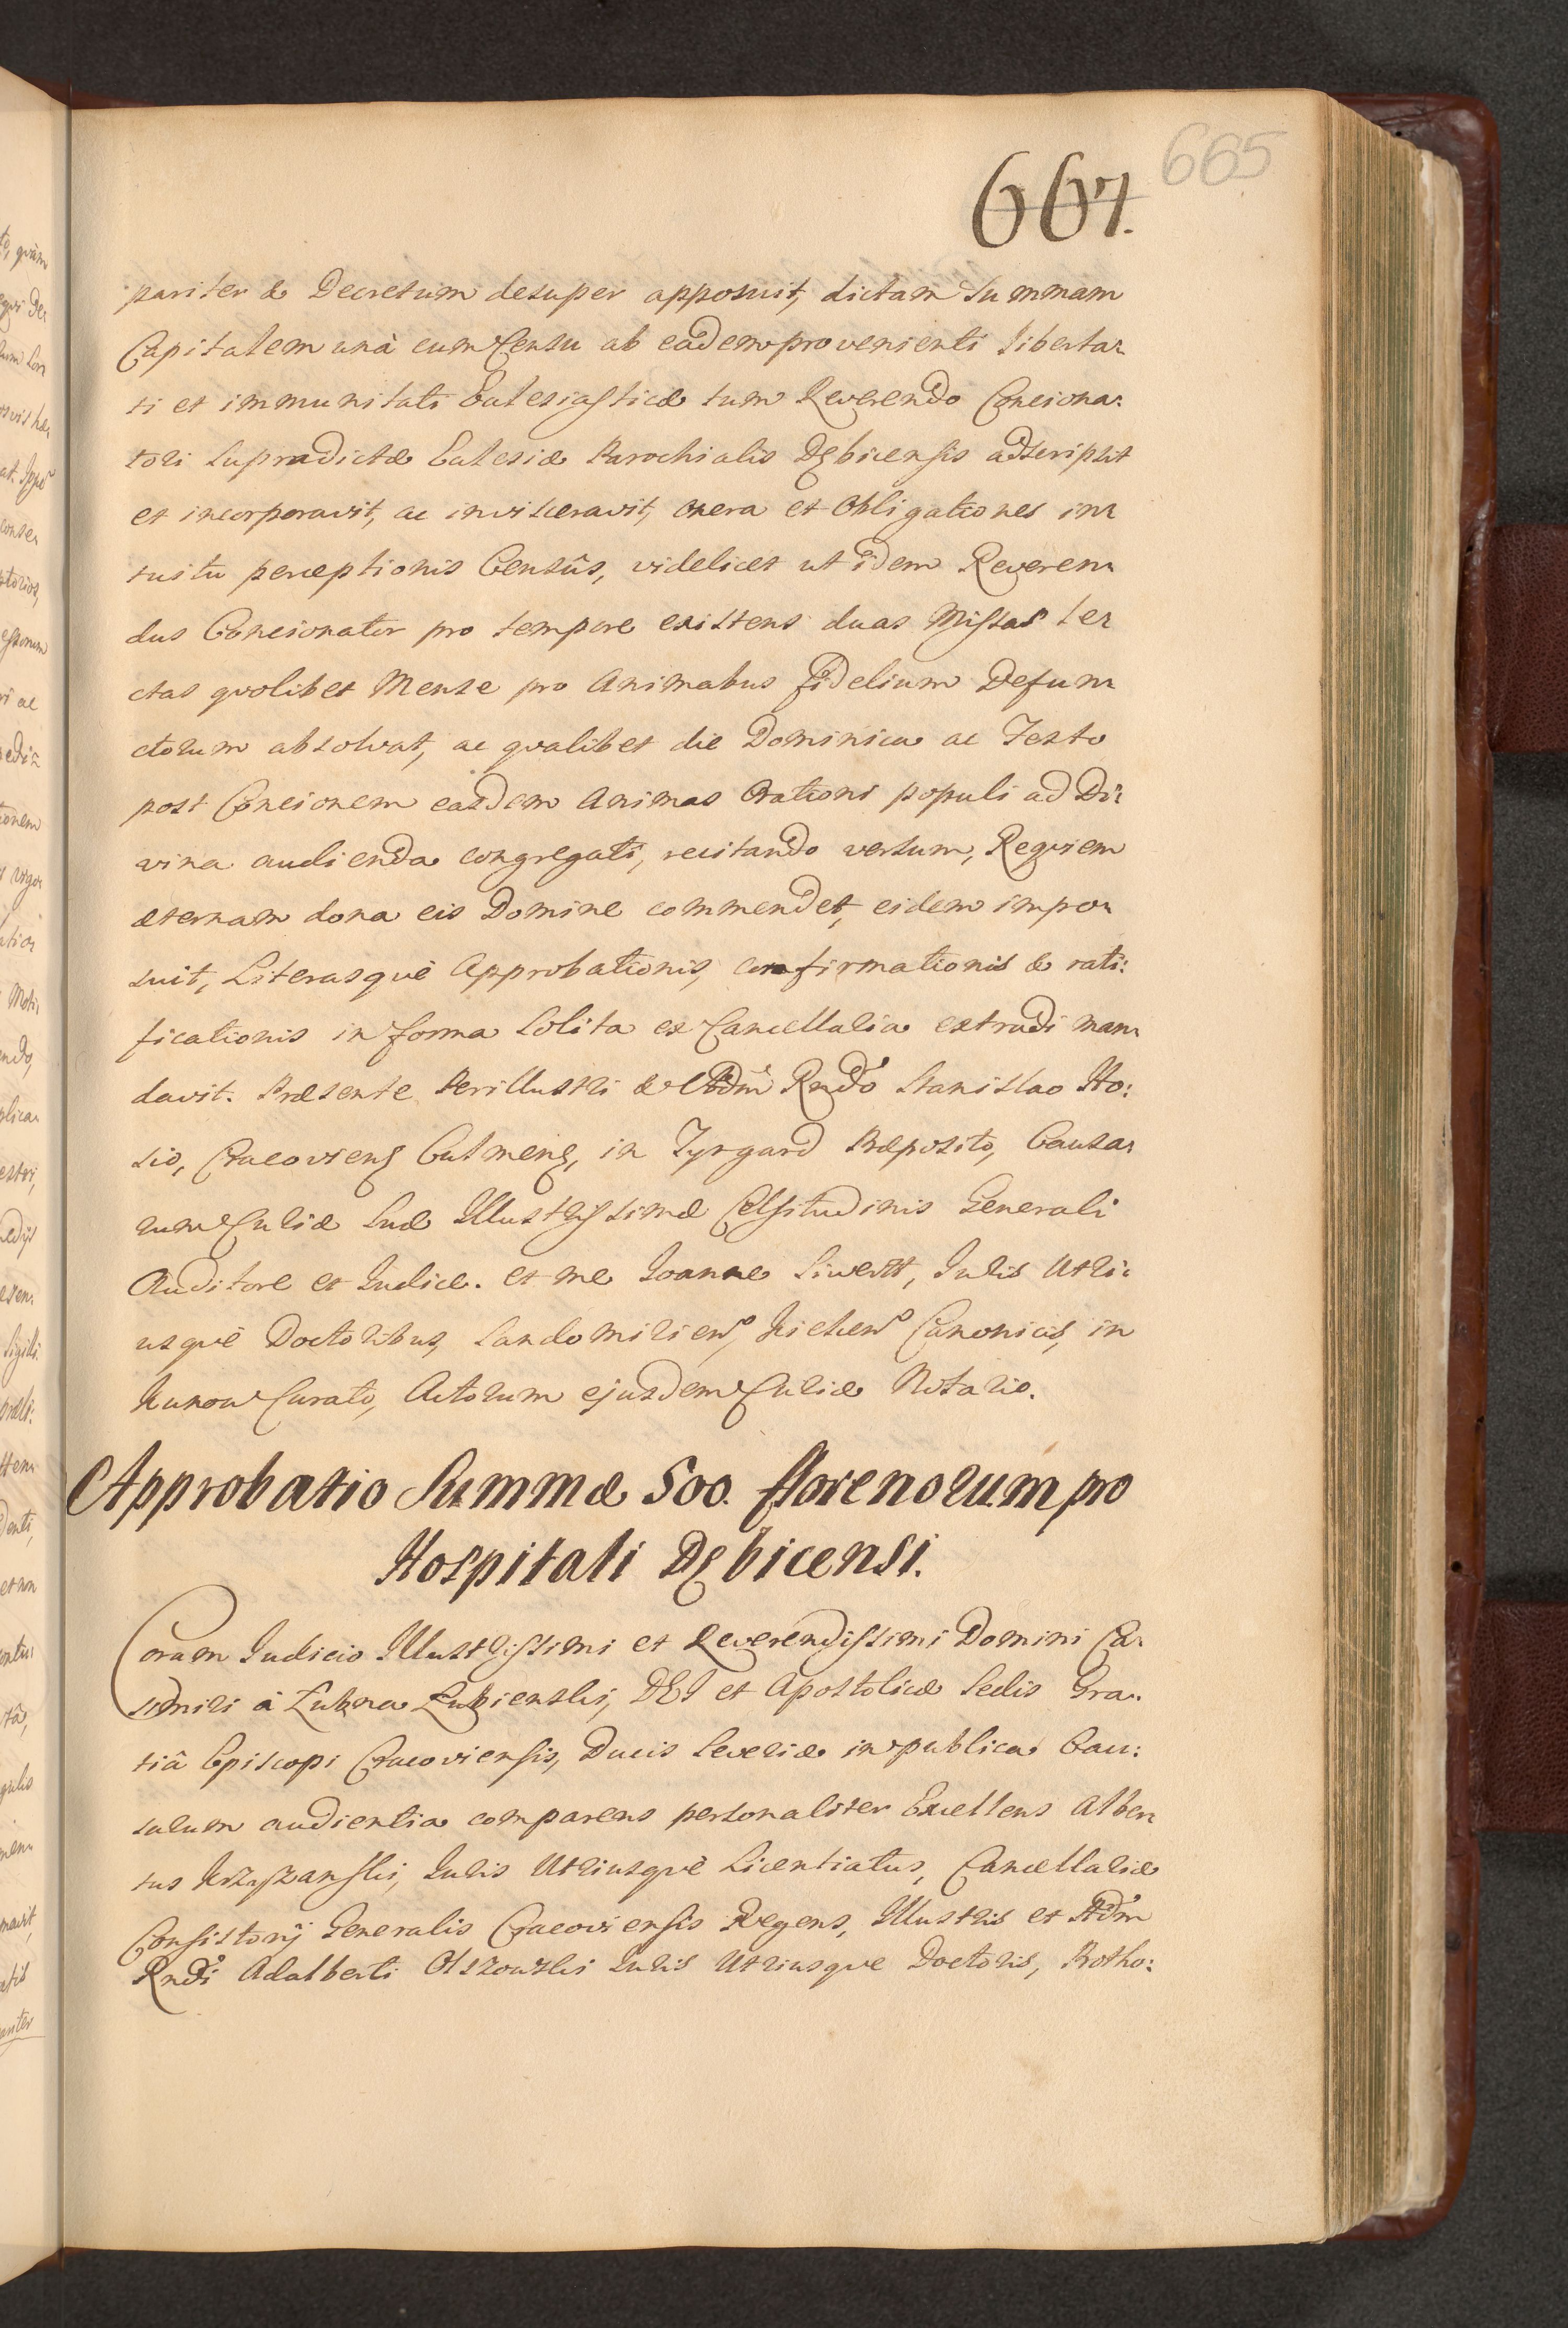 665
667.
pariter & Decretum desuper apposuit, dictam Summam
Capitalem unà cum Censu ab eadem provenienti liberta-
ti et immunitati Eclesiasticæ tum Reverendo Conciona:
tori Supradictæ Eclesiæ Parochialis Dębicensis adscripsit
et incorporavit, ac invisceravit, onera et Obligationes in-
tuitu perceptionis Censûs, videlicet ut idem Reveren-
dus Concionator pro tempore existens duas Missas le-
ctas qvolibet Mense pro Animabus fidelium Defun-
ctorum absolvat, ac qvalibet die Dominica ac Festo
post Concionem easdem Animas Orationi populi ad Di:
vina audienda congregati, recitando versum, Reqviem
æternam dona eis Domine commendet, eidem impo-
suit, Literasqvè Approbationis, confirmationis & rati:
ficationis in forma Solita ex Cancellaria extradi man-
davit. Præsente Perillustri & Adm̃ Rndo Stanislao Ho:
sio, Cracovieñ Culmeñ, in Fyrgard Præposito, Causa-
rum Curiæ Suæ Illustrissimæ Celsitudinis Generali
Auditore et Iudice. et me Ioanne Siwertt, Iuris Utri:
usqvè Doctoribus, Sandomirien̊, Kielcen̊ Canonicis, in
Kunow Curato, Actorum ejusdem Curiæ Notario.
Approbatio Summæ 500. florenorum pro
Hospitali Dębicensi.
Coram Iudicio Illustrissimi et Reverendissimi Domini Ca-
simiri à Łubna Łubienski, DEI et Apostolicæ Sedis Gra-
tiâ Episcopi Cracoviensis, Ducis Severiæ in publica Cau:
sarum audientia comparens personaliter Excellens Alber-
tus Krzyszanski, Iuris Utriusqvè Licentiatus, Cancellariæ
Consistorij Generalis Cracoviensis Regens, Illustris et Adm̃
Rndi Adalberti Olszowski Iuris Utriusque Doctoris, Protho: